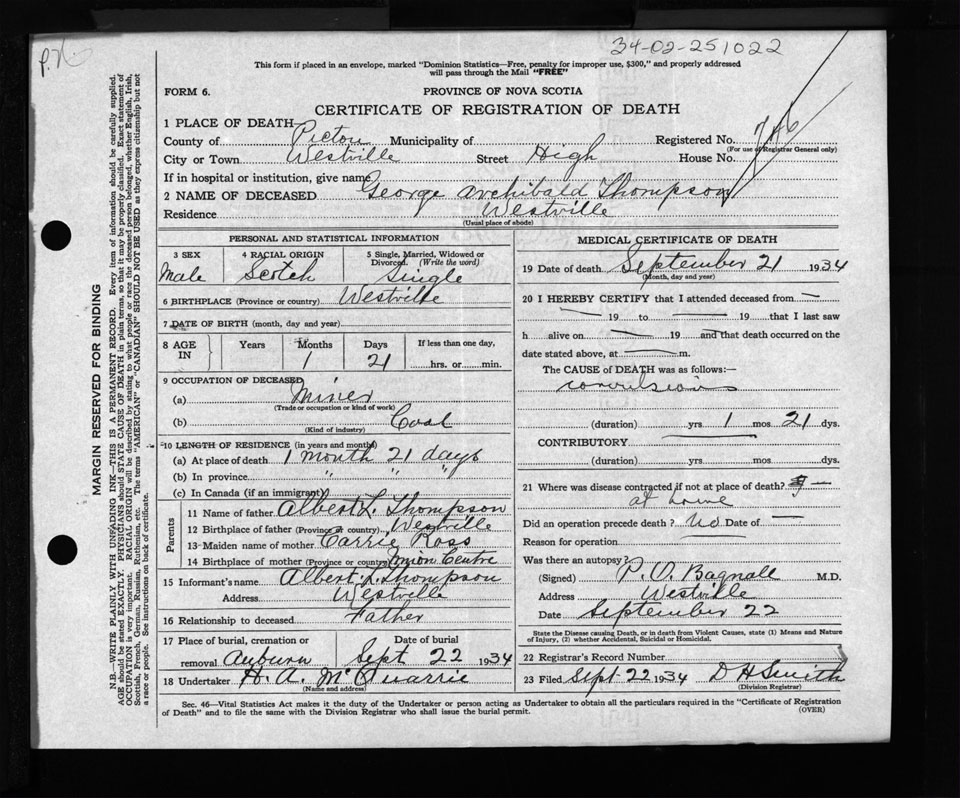 34-02-251022
P.N
This form if placed in an envelope, marked "Dominion Statistics—Free, penalty for improper use, $300," and properly addressed
will pass through the Mail "FREE"
FORM 6.
PROVINCE OF NOVA SCOTIA
CERTIFICATE OF REGISTRATION OF DEATH
MARGIN RESERVED FOR BINDING
N.B.—WRITE PLAINLY WITH UNFADING INK—THIS IS A PERMANENT RECORD. Every item of information should be carefully supplied.
AGE should be stated EXACTLY. PHYSICIANS should STATE CAUSE OF DEATH in plain terms, so that it may be properly classified. Exact statement of
OCCUPATION is very important. RACIAL ORIGIN will be described by stating to what people or race the deceased person belonged, whether English, Irish,
Scottish, French, German, Russian, Ruthenian, etc. The terms "AMERICAN" or "CANADIAN" SHOULD NOT BE USED as they express citizenship but not
a race or people. See instructions on back of certificate.
1 PLACE OF DEATH
County of Pictou Municipality of Registered No. 746
(For use of Registrar General only)
City or Town Westville Street High House No.
If in hospital or institution, give name
2 NAME OF DECEASED George Archibald Thompson
Residence Westville
(Usual place of abode)
PERSONAL AND STATISTICAL INFORMATION
3 SEX 4 RACIAL ORIGIN 5 Single, Married, Widowed or
Divorced. (Write the word)
Male Scotch Single
6 BIRTHPLACE (Province or country) Westville
7 DATE OF BIRTH (month, day and year)
8 AGE IN Years Months Days If less than one day,
1 21 hrs. or min.
9 OCCUPATION OF DECEASED
(a) Miner
(Trade or occupation or kind of work)
(b) Coal
(Kind of industry)
10 LENGTH OF RESIDENCE (in years and months)
(a) At place of death 1 month 21 days
(b) In province " " "
(c) In Canada (if an immigrant)
Parents
11 Name of father Albert L. Thompson
12 Birthplace of father (Province or country) Westville
13 Maiden name of mother Carrie Ross
14 Birthplace of mother (Province or country) Union Centre
15 Informant's name Albert L. Thompson
Address Westville
16 Relationship to deceased Father
17 Place of burial, cremation or Date of burial
removal Auburn Sept 22 1934
18 Undertaker H. A. McQuarrie
(Name and address)
MEDICAL CERTIFICATE OF DEATH
19 Date of death September 21 1934
(Month, day and year)
20 I HEREBY CERTIFY that I attended deceased from —
— 19 to — 19 that I last saw
h alive on — 19 — and that death occurred on the
date stated above, at — m.
The CAUSE of DEATH was as follows:—
convulsions
(duration) yrs 1 mos 21 dys.
CONTRIBUTORY —
(duration) yrs. mos. dys.
21 Where was disease contracted if not at place of death? —
at home
Did an operation precede death? No Date of —
Reason for operation
Was there an autopsy?
(Signed) P. O. Bagnall M.D.
Address Westville
Date September 22
State the Disease causing Death, or in death from Violent Causes, state (1) Means and Nature
of Injury, (2) whether Accidental, Suicidal or Homicidal.
22 Registrar's Record Number
23 Filed Sept. 22 1934 D H Smith
(Division Registrar)
Sec. 46—Vital Statistics Act makes it the duty of the Undertaker or person acting as Undertaker to obtain all the particulars required in the "Certificate of Registration
of Death" and to file the same with the Division Registrar who shall issue the burial permit.
(OVER)